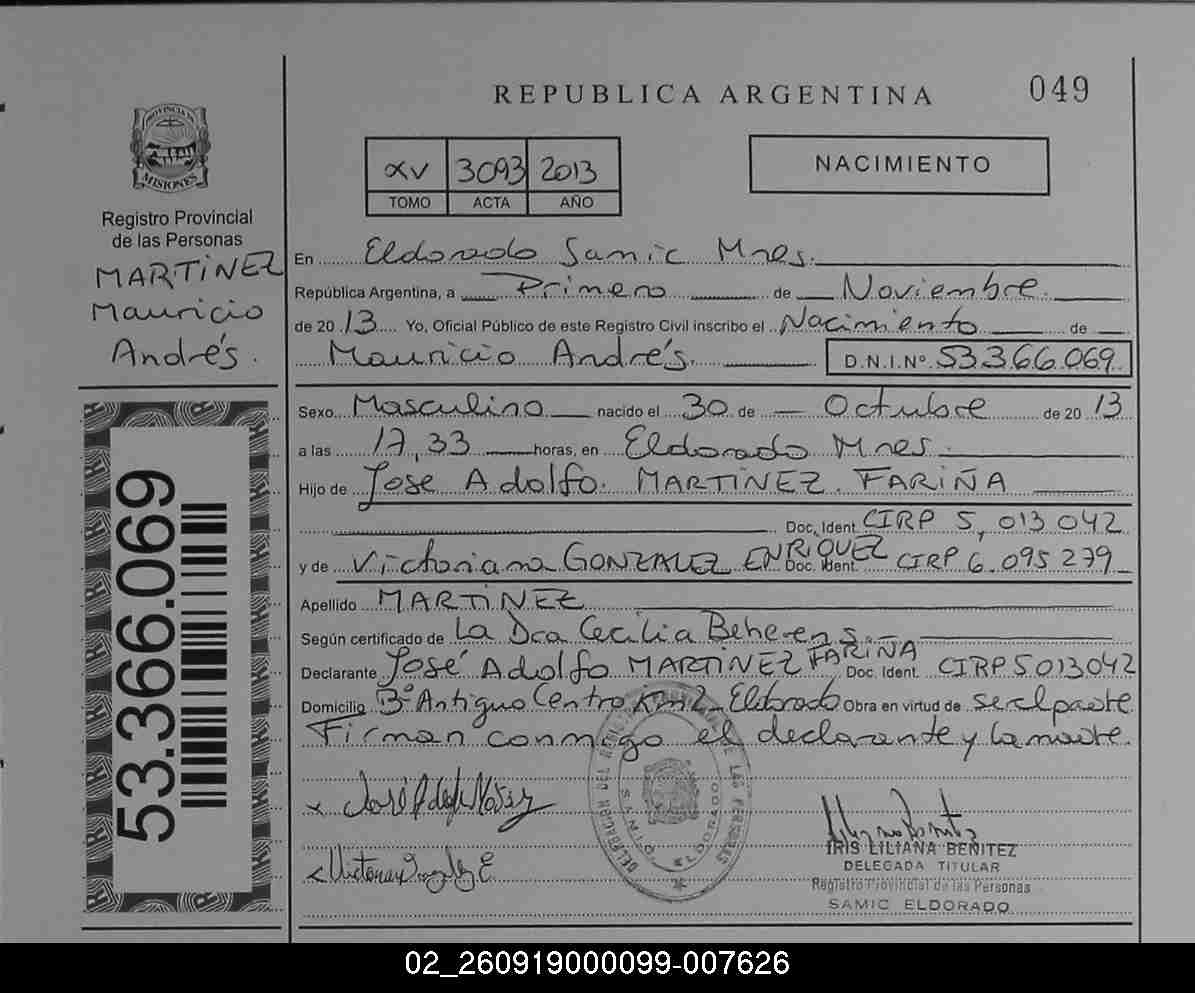 REPUBLICA ARGENTINA
049
PROVINCIA DE
MISIONES
Registro Provincial
de las Personas
MARTINEZ
Mauricio
Andrés.
53.366.069
XV 3093 2013
TOMO ACTA AÑO
NACIMIENTO
En Eldorado Samic Mnes.
República Argentina, a Primero de Noviembre.
de 2013 Yo, Oficial Público de este Registro Civil inscribo el Nacimiento de
Mauricio Andrés. D.N.I.Nº 53.366.069
Sexo Masculino nacido el 30 de Octubre de 2013
a las 17,33 horas, en Eldorado Mnes.
Hijo de Jose Adolfo. MARTINEZ. FARIÑA
Doc. Ident. CIRP 5,013042
y de Victoriana GONZALEZ ENRIQUEZ Doc. Ident. CIRP 6.095279
Apellido MARTINEZ
Según certificado de La Dra Cecilia Beherens.
Declarante José Adolfo MARTINEZ FARIÑA Doc. Ident. CIRP5013042
Domicilio Bº Antiguo Centro Km2 Eldorado Obra en virtud de ser el padre.
Firman conmigo el declarante y la madre.
DELEGACION DEL REGISTRO PROVINCIAL DE LAS PERSONAS
ELDORADO
IRIS LILIANA BENITEZ
DELEGADA TITULAR
Registro Provincial de las Personas
SAMIC ELDORADO
02_260919000099-007626